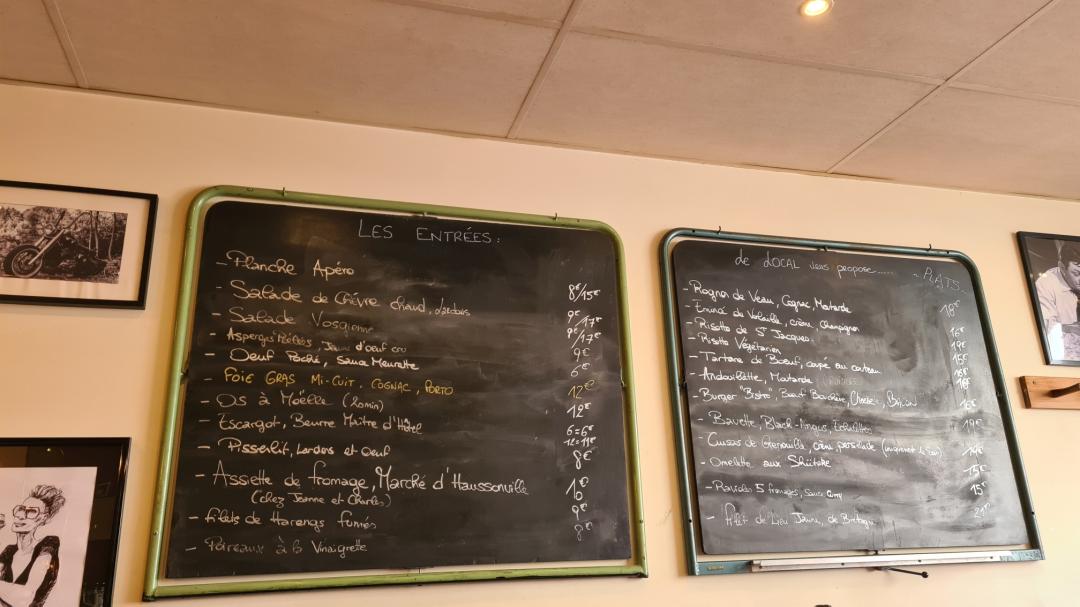 LES ENTRÉES:
- Planche Apéro 8€/15€
- Salade de Chèvre chaud, d'ardois 9€/17€
- Salade Vosgienne 9€/17€
- Asperges Jaune d'oeuf cru 9€
- Oeuf Poché, Sauce Meurette 6€
- FOIE GRAS MI-CUIT, COGNAC, PORTO 12€
- OS à Moëlle (20min) 12€
- Escargot, Beurre Maître d'Hôtel 6=6€ 12=11€
- Pissenlit, Lardons et Oeuf 8€
- Assiette de fromage, Marché d'Haussonville 10€
(chez Jeanne et Charles)
- filets de Harengs fumés 9€
- Poireaux à la Vinaigrette 8€
de LOCAL vous propose..... - PLATS.
- Rognon de Veau, Cognac, Moutarde 18€
- Emincé de Volaille, crème, champignon 16€
- Risotto de St Jacques 19€
- Risotto Végétarien 15€
- Tartare de Boeuf, coupé au couteau
- Andouillette, Moutarde
- Burger "Bistro", Boeuf Bouchère, 16€
- Bavette, Black-Angus, Echalottes 19€
- Cuisses de Grenouille, crème persillade 19€
- Omelette aux Shiitake 15€
- Ravioles 5 fromages, Sauce 15€
- Filet de Lieu Jaune, de Bretagne 21€